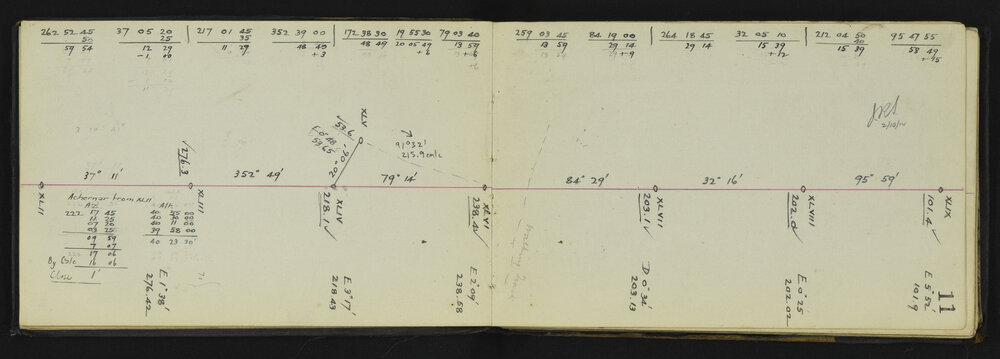 262 52 45 37 05 20 217 01 45 352 39 00 172 38 30 19 55 30 79 03 40 259 03 45 84 19 00 264 18 45 32 05 10 212 04 50 95 47 55
50 25 35 40
59 54 12 29 11 29 48 49 48 49 20 05 49 13 59 13 59 29 14 29 14 15 39 15 39 58 49
+3 +6 +6 +9 +12 +15
XLV
√53.6
E 0° 48'
53.65
20° 06'
91° 32'
215.9 calc
2/10/12
√276.3
37° 11' 352° 49' 79° 14' 84° 29' 32° 16' 95° 59'
XLII XLIII XLIV XLVI XLVII XLVIII XLIX
218.1√ 238.4√ 203.1√ 202.0√ 101.4√
Achernar from XLII
Az Alt
222 17 45 40 55 00
11 25 40 30 00
07 30 40 11 00
03 25 39 58 00
09 59 40 23 30
7 07
17 06
By Calc 16 06
Close 1'
E 1° 38'
276.42
E 3° 17'
218.43
E 2° 09'
238.58
D 0° 34'
203.13
E 0° 25'
202.02
E 5° 52'
101.9
11